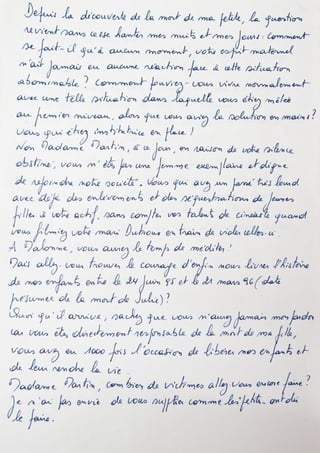 Depuis la découverte de la mort de ma petite, la question
revient sans cesse hanter mes nuits et mes jours : comment
se fait-il qu'à aucun moment, votre esprit maternel
n'ait jamais eu aucune réaction face à cette situation
abominable ? Comment pouviez-vous vivre normalement
avec une telle situation dans laquelle vous étiez mêlée
au premier niveau, alors que vous aviez la solution en mains ?
Vous qui étiez institutrice en place !
Non Madame Martin, à ce jour, en raison de votre silence
obstiné, vous n'êtes pas une femme exemplaire et digne
de rejoindre notre société. Vous qui avez un passé très lourd
avec déjà des enlèvements et des séquestrations de jeunes
filles à votre actif, sans compter vos talents de cinéaste quand
vous filmiez votre mari Dutroux en train de violer celles-ci.
A Malonne, vous aurez le temps de méditer !
Mais allez-vous trouver le courage d'enfin nous livrer l'histoire
de nos enfants entre le 24 juin 95 et le 21 mars 96 (date
présumée de la mort de Julie) ?
Quoi qu'il arrive, sachez que vous n'aurez jamais mon pardon
car vous êtes directement responsable de la mort de ma fille,
vous avez eu 1000 fois l'occasion de libérer nos enfants et
de leur rendre la vie.
Madame Martin, combien de victimes allez-vous encore faire ?
Je n'ai pas envie de vous supplier comme les petites ont dû
le faire.